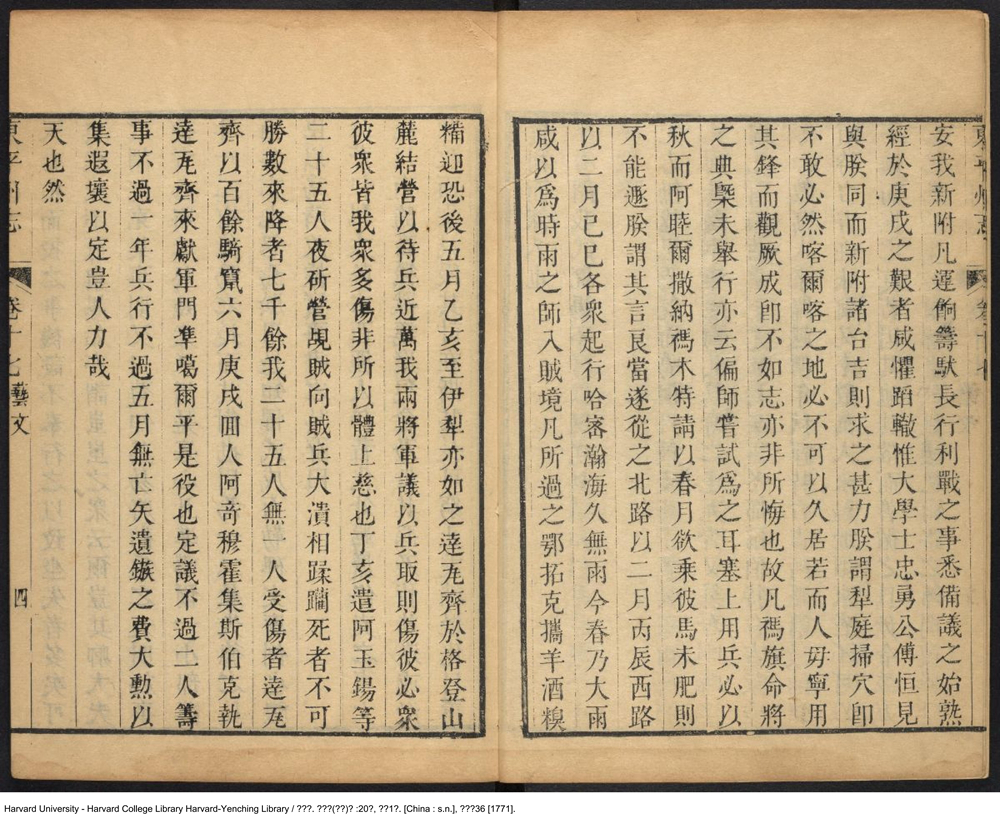 安我新附凡運餉籌馱長行利戰之事悉備議之始熟
經於庚戌之艱者咸懼蹈轍惟大學士忠勇公傅恒見
與朕同而新附諸台吉則求之甚力朕謂犁庭掃穴即
不敢必然喀爾喀之地必不可以久居若而人毋寧用
其鋒而觀厥成即不如志亦非所悔也故凡禡旗命將
之典槩未舉行亦云偏師嘗試爲之耳塞上用兵必以
秋而阿睦爾撒納禡木特請以春月欲乗彼馬未肥則
不能遯朕謂其言良當遂從之北路以二月丙辰西路
以二月己巳各衆起行哈密瀚海久無雨今春乃大雨
咸以爲時雨之師入賊境凡所過之鄂拓克攜羊酒糗
糒迎恐後五月乙亥至伊犁亦如之達瓦齊於格登山
麓結營以待兵近萬我兩將軍議以兵取則傷彼必衆
彼衆皆我衆多傷非所以體上慈也丁亥遣阿玉錫等
二十五人夜斫營覘賊向賊兵大潰相蹂躪死者不可
勝數來降者七千餘我二十五人無一人受傷者達瓦
齊以百餘騎竄六月庚戌囬人阿竒穆霍集斯伯克執
達瓦齊來獻軍門凖噶爾平是役也定議不過二人籌
事不過一年兵行不過五月無亡矢遺鏃之費大勲以
集遐壤以定豈人力哉
天也然
東平州志 卷十七 藝文 四
Harvard University - Harvard College Library Harvard-Yenching Library / ???. ???(??)? :20?, ??1?. [China : s.n.], ???36 [1771].